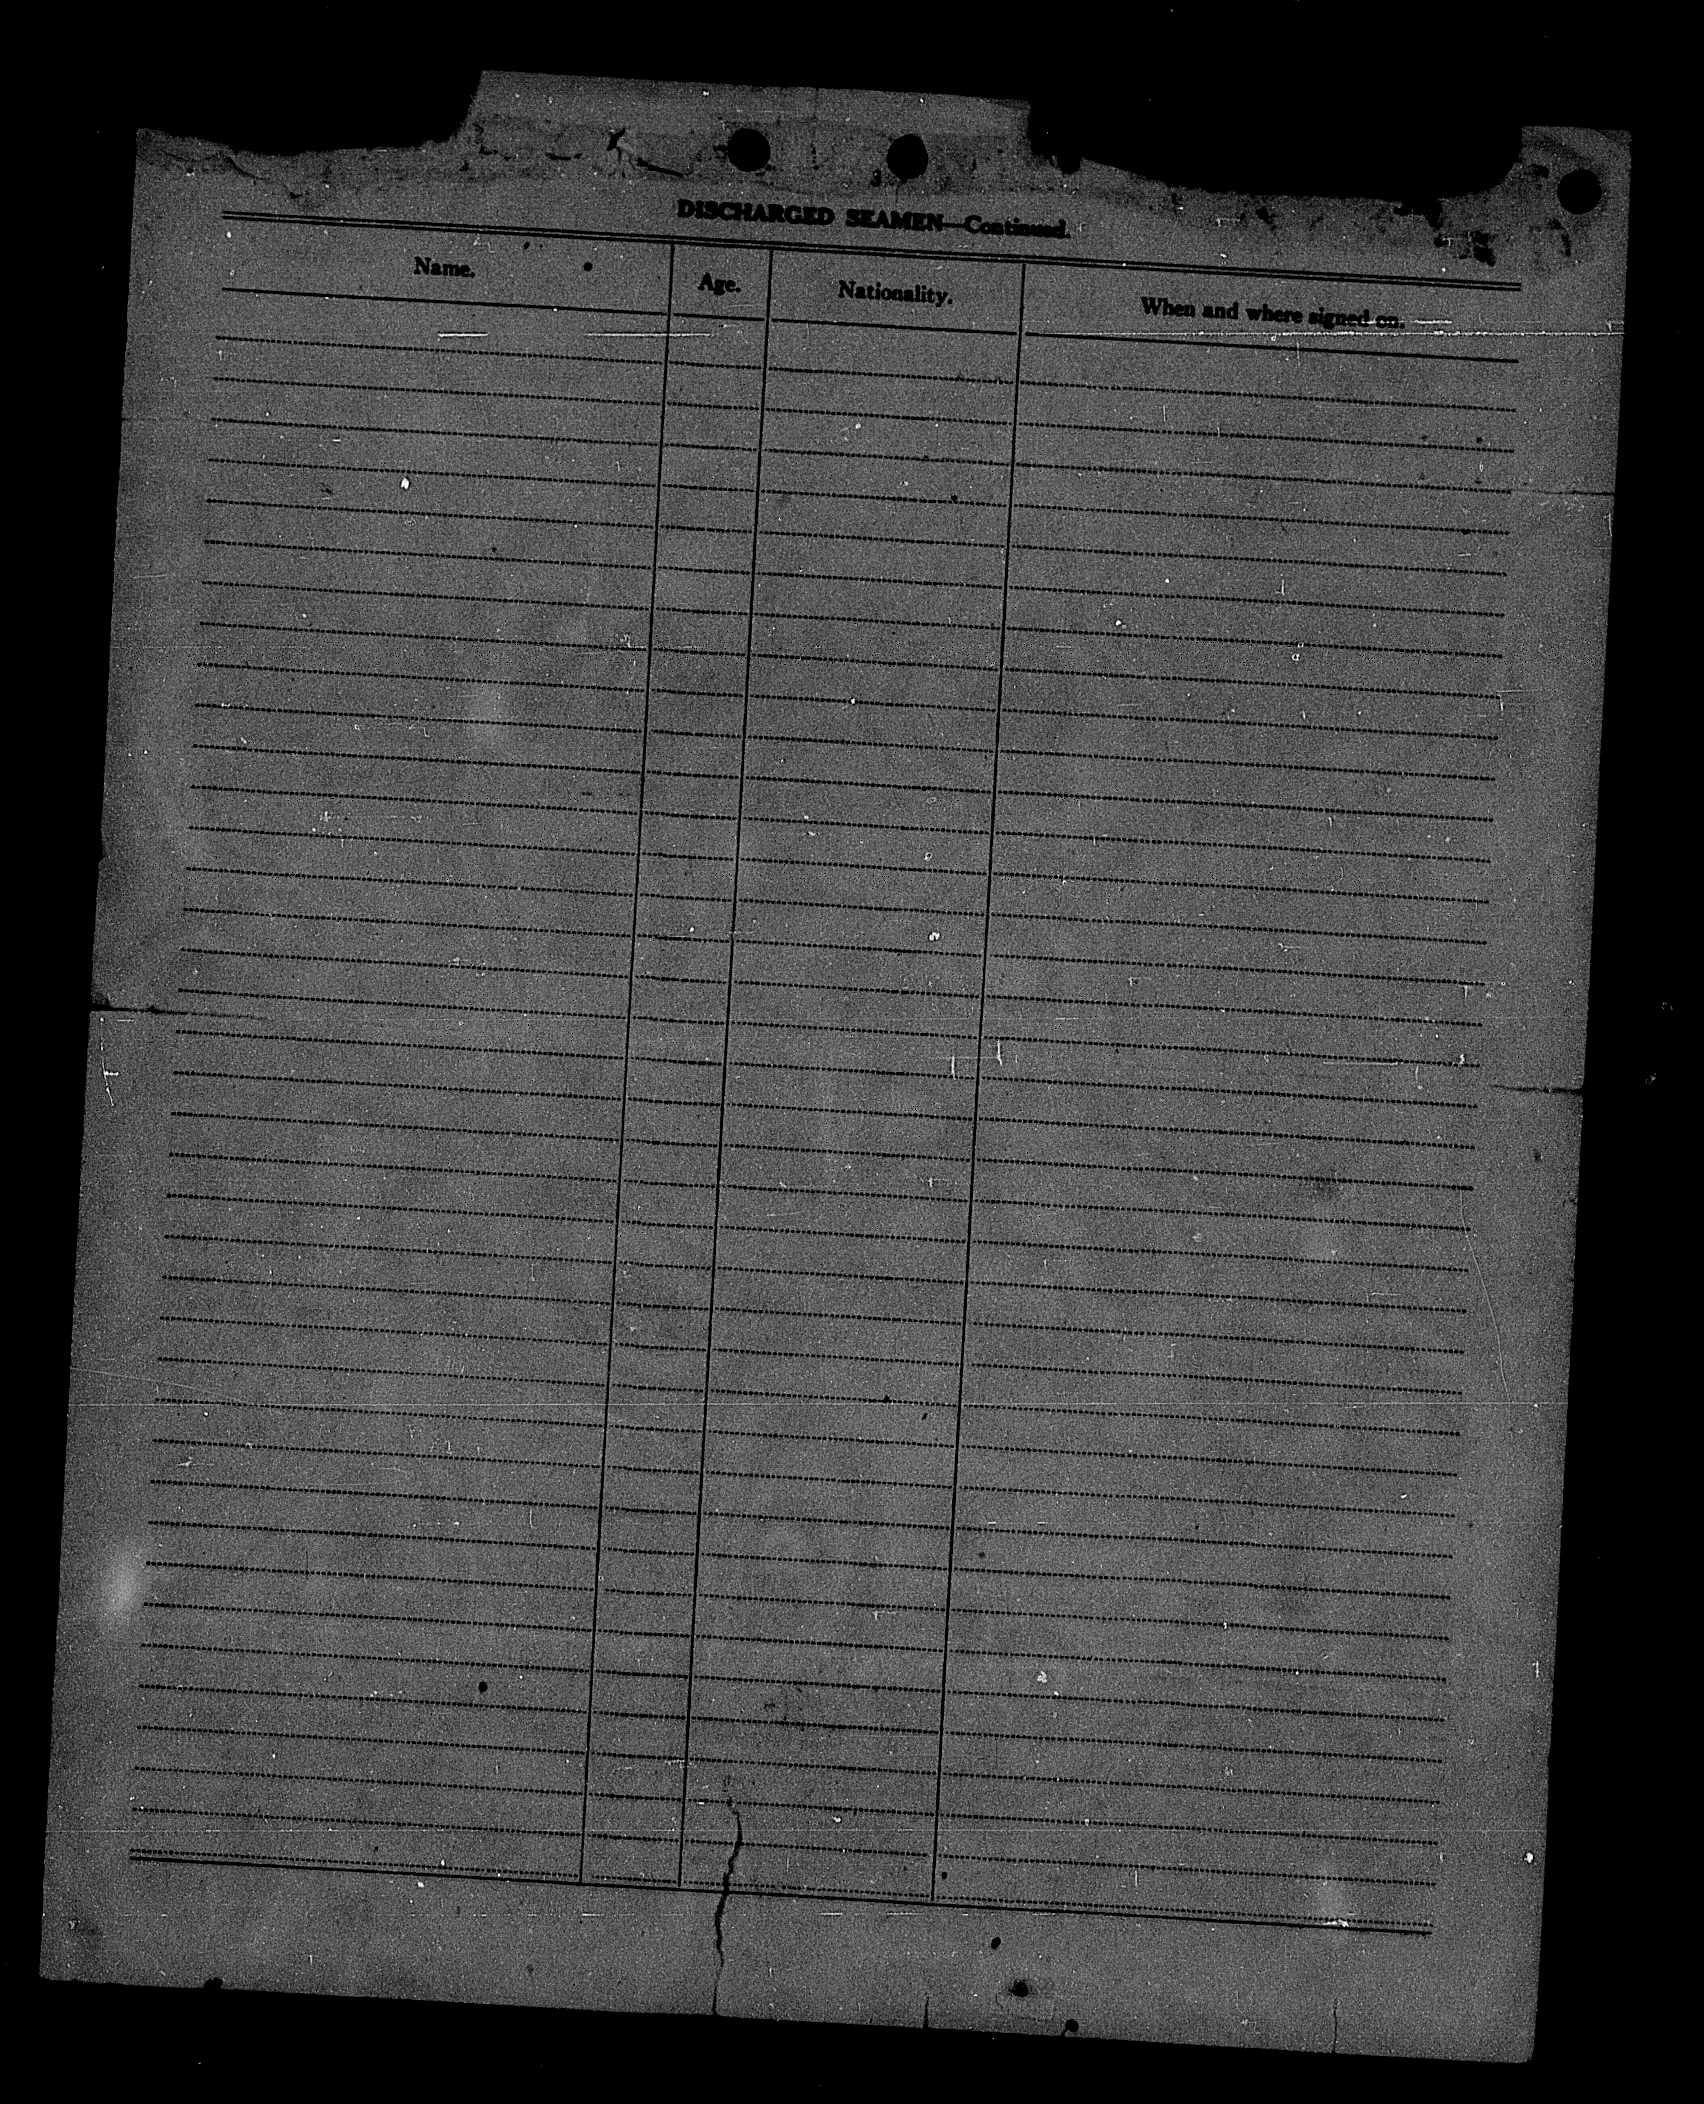 3
DISCHARGED SEAMEN—Continued.
Name. Age. Nationality. When and where signed on.